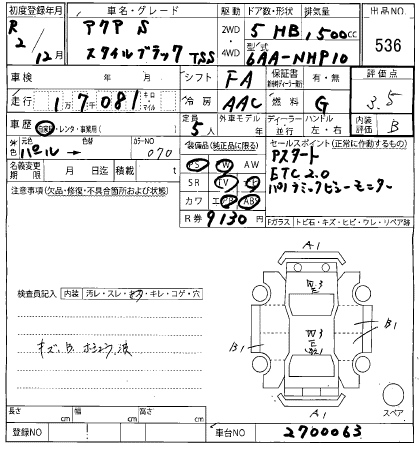 初度登録年月 車名・グレード 駆動 ドア数・形状 排気量 出品NO.
R 2/12月 アクア S 2WD 4WD 5 HB 1,500cc 536
スタイルブラック TSS 型式 6AA-NHP10
車検 年 月 シフト FA 保証書 有・無 評価点
走行 1万7081 キロ マイル 冷房 AAC 燃料 G 3.5
車歴 自家用・レンタ・事業用( ) 定員 5人 外車モデル 年 ディーラー 並行 ハンドル 左・右 内装評価 B
外色 元色 パール 色替 カラーNO 070 装備品(純正品に限る) セールスポイント(正常に作動するもの)
PS PW AW アスタート
名義変更期限 月 日迄 積載 t SR TV ナビ ETC2.0
注意事項(欠品・修復・不具合箇所および状態) カワ エアB ABS パノラミックビューモニター
R券 9130円 Fガラス トビ石・キズ・ヒビ・ワレ・リペア跡
A1
検査員記入 内装 汚レ・スレ・キズ・キレ・コゲ・穴
キズ、B、ホシュウ、波
W3
B1
B1
A1
スペア
長さ cm 幅 cm 高さ cm
登録NO 車台NO 2700063